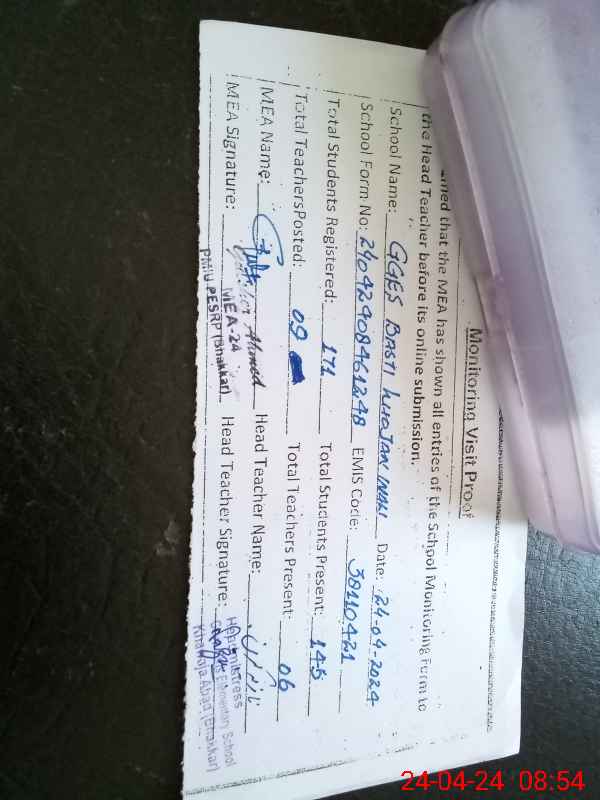 Monitoring Visit Proof
med that the MEA has shown all entries of the School Monitoring Form to
the Head Teacher before its online submission.
School Name: GGES BASTI Date: 24-04-2024
School Form No: 24042908461248 EMIS Code: 38110421
Total Students Registered: 171 Total Students Present: 145
Total TeachersPosted: 09 Total Teachers Present: 06
MEA Name: Ahmed Head Teacher Name:
MEA Signature: MEA-24 Head Teacher Signature: Headmistress
PMIU PESRP (Bhakkar) Elementary School
Khawaja Abad (Bhakkar)
24-04-24 08:54